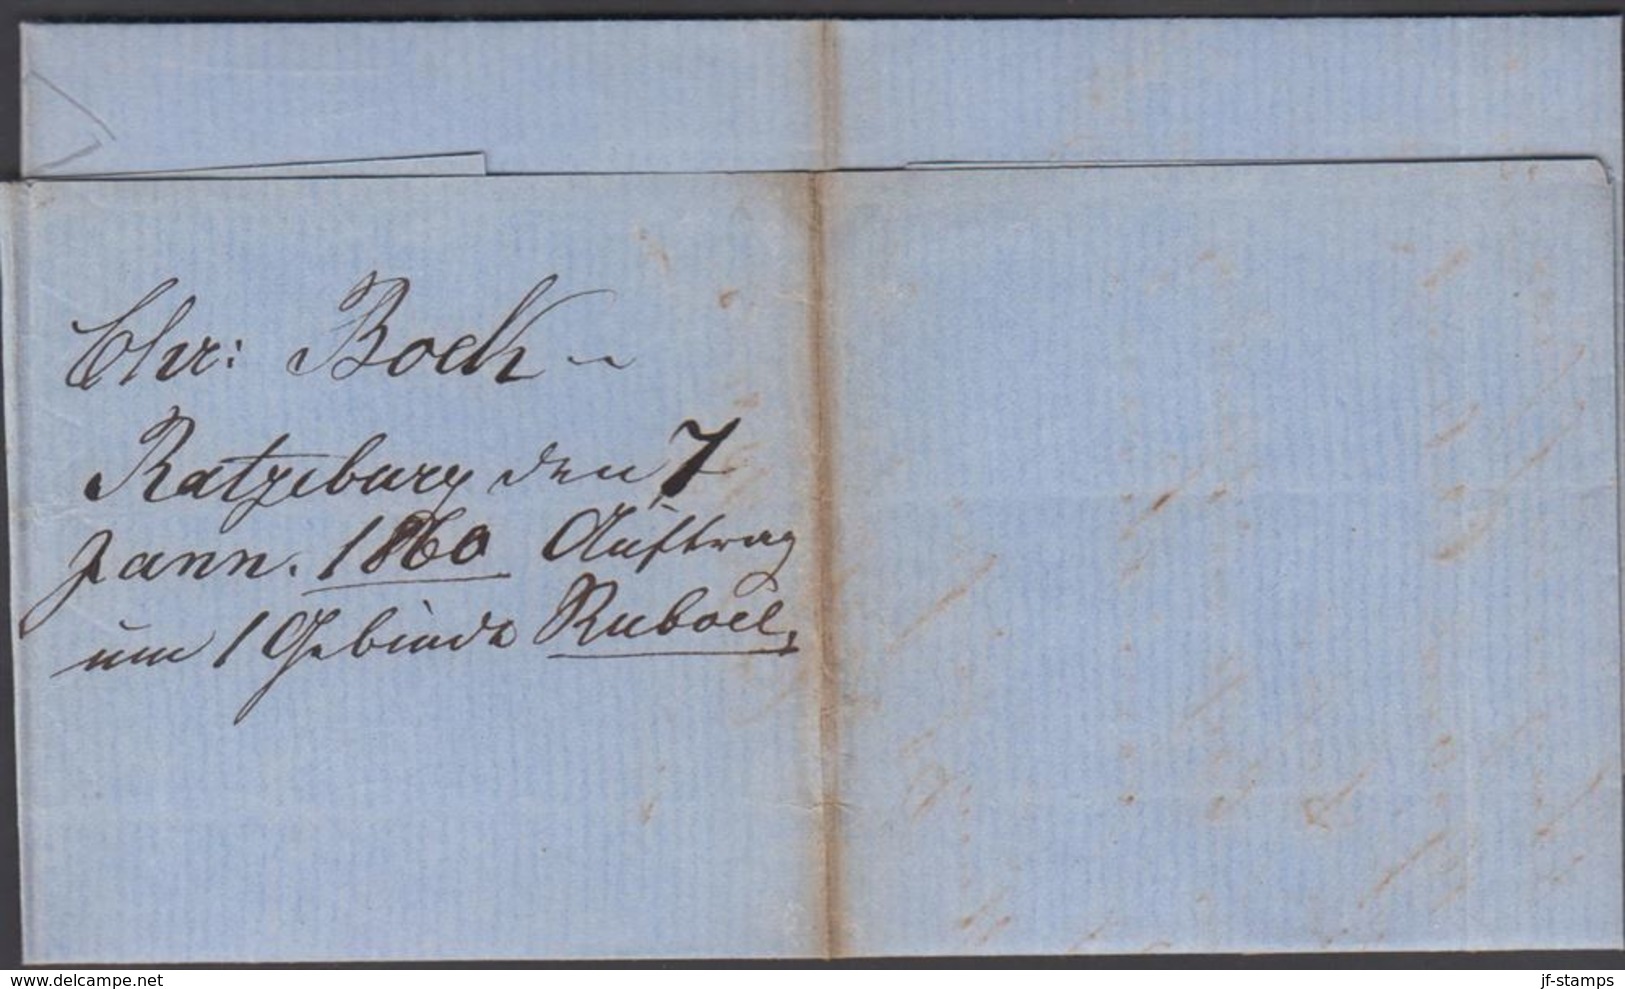 Chr: Bock
Ratzeburg den 7
Jann. 1860 Auftrag
um 1 Gebinde Ruboel.
delcampe.net
jf-stamps